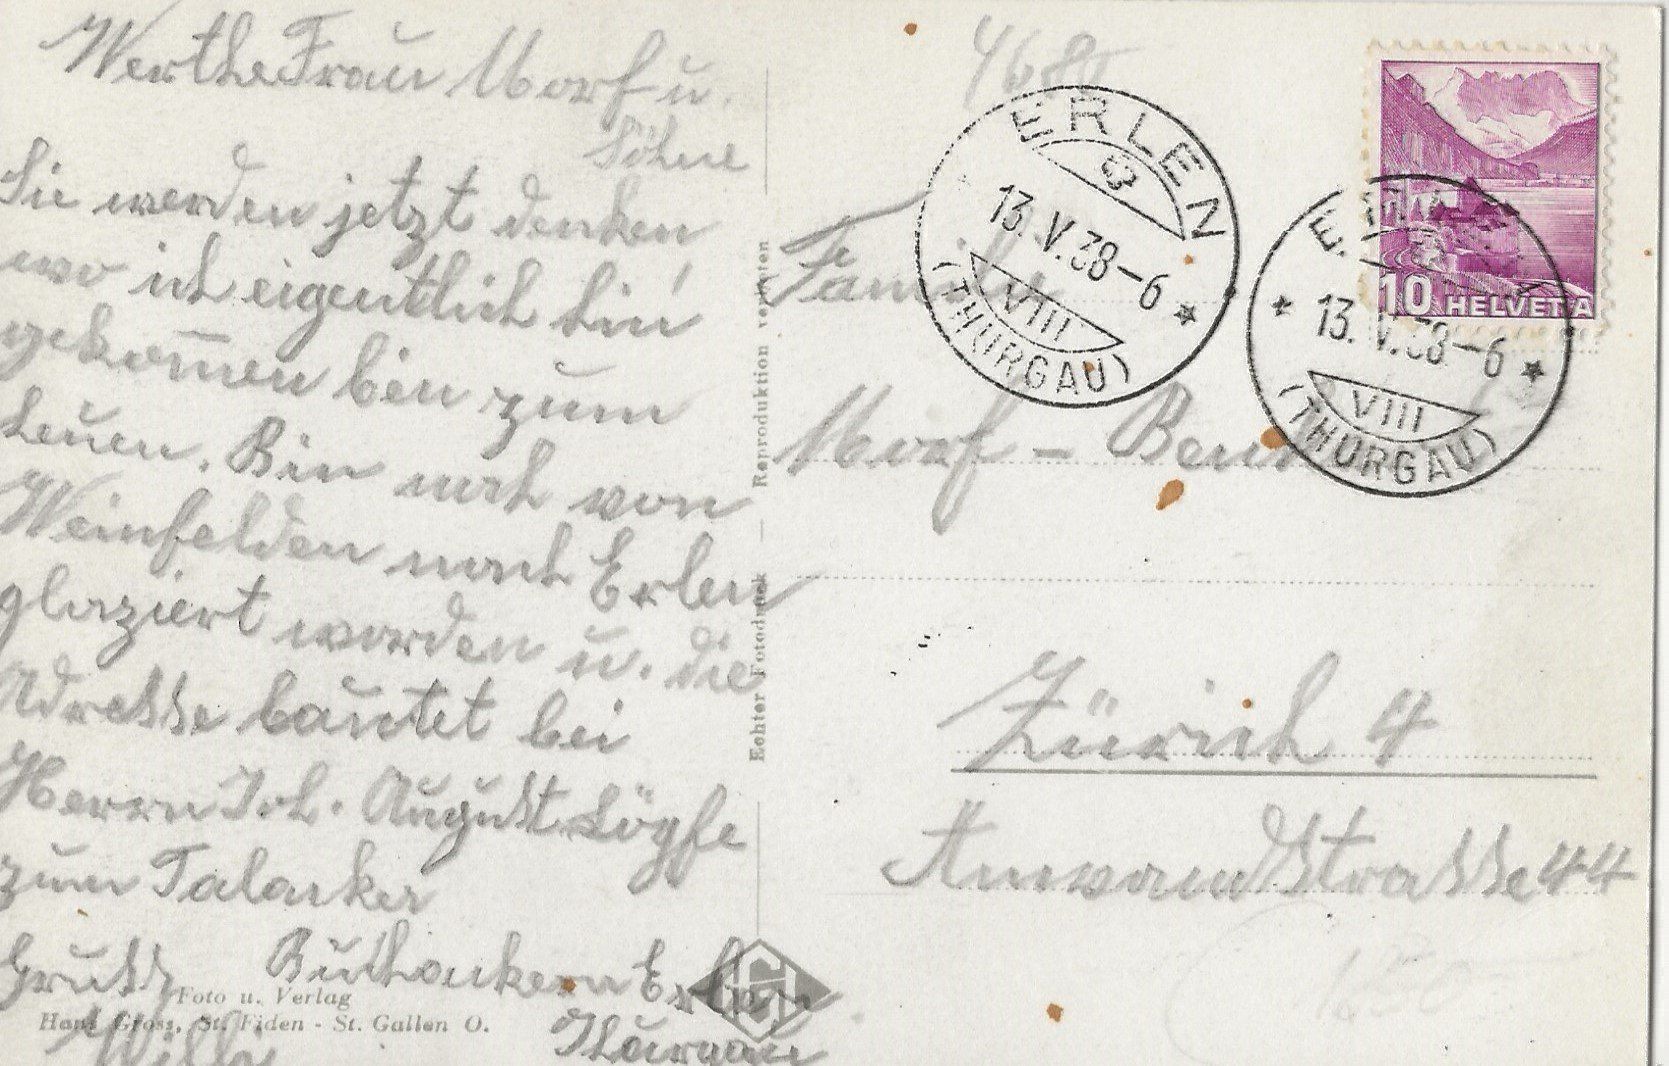 Werthe Frau Morf u.
Söhne
Sie werden jetzt denken
wo ich eigentlich hin
gekom̅en bin zum
heuen. Bin noch von
Weinfelden nach Erlen
plaziert worden u. die
Adresse lautet bei
Herrn Joh. August
zum
Gruss Buchackern Erlen
Willi Thurgau
Foto u. Verlag
Hans Gross, St. Fiden - St. Gallen O.
Echter Fotodruck — Reproduktion verboten
HG
468
ERLEN
13.V.38-6
VIII
(THURGAU)
13.V.38-6
VIII
(THURGAU)
10 HELVETIA
Familie
Morf -
Zürich 4
Anwandstrasse 44